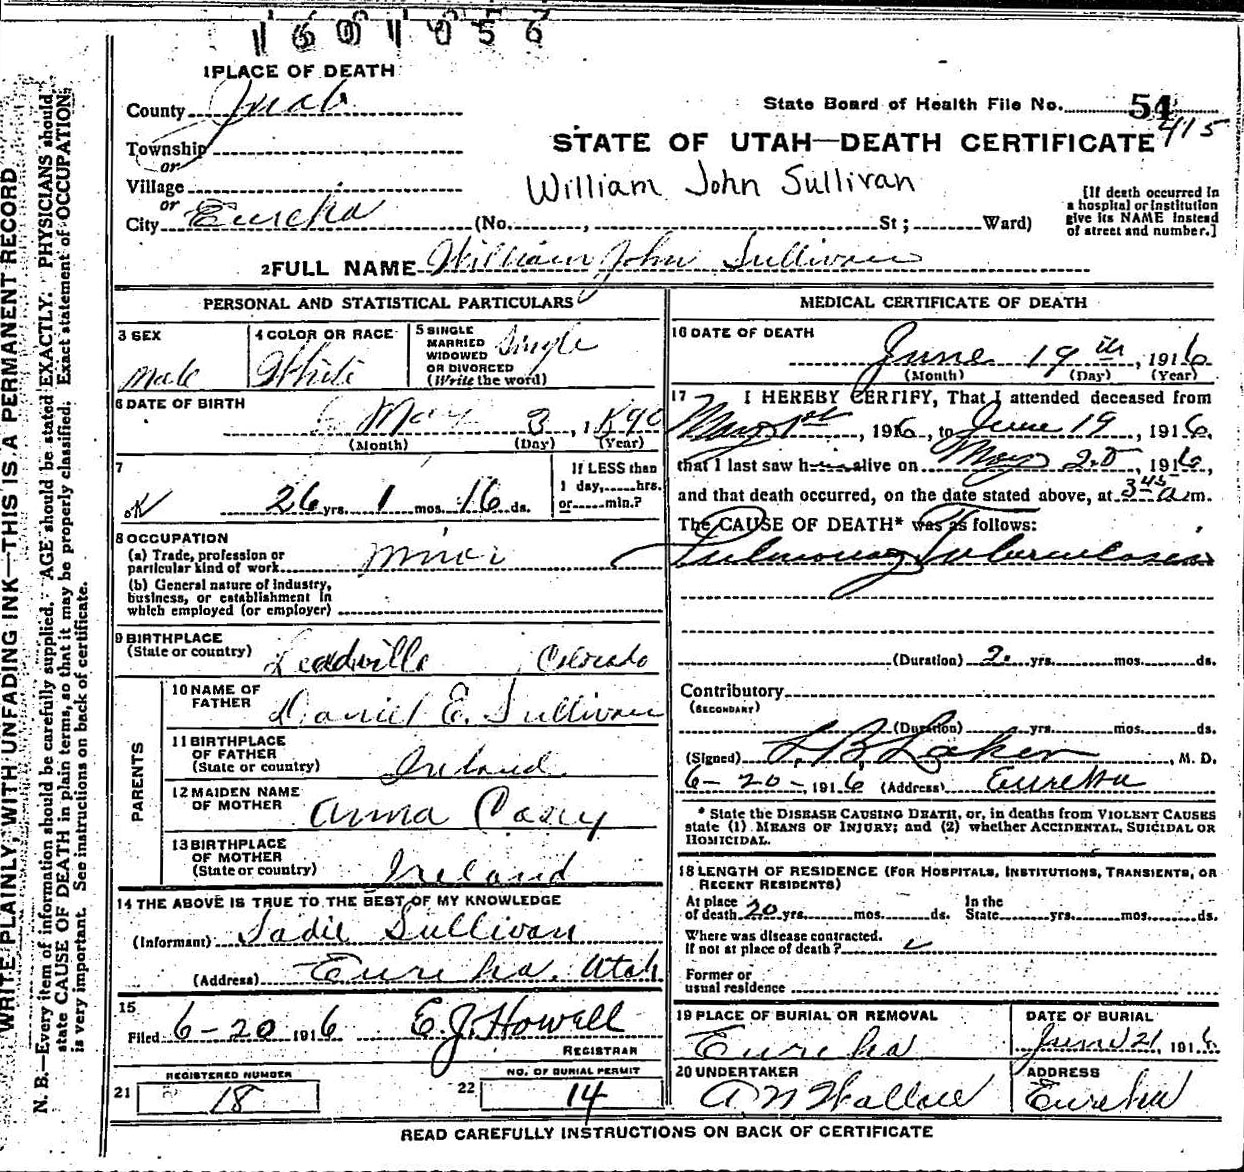 1601056
1 PLACE OF DEATH
County Juab
State Board of Health File No. 54
415
STATE OF UTAH—DEATH CERTIFICATE
Township
or
Village
or
City Eureka (No. , St; Ward)
William John Sullivan
[If death occurred in
a hospital or institution
give its NAME instead
of street and number.]
2 FULL NAME William John Sullivan
PERSONAL AND STATISTICAL PARTICULARS
3 SEX
Male
4 COLOR OR RACE
White
5 SINGLE
MARRIED
WIDOWED
OR DIVORCED
(Write the word)
Single
6 DATE OF BIRTH
May 3, 1890
(Month) (Day) (Year)
7
OK 26 yrs. 1 mos. 16 ds.
If LESS than
1 day, hrs.
or min.?
8 OCCUPATION
(a) Trade, profession or
particular kind of work minor
(b) General nature of industry,
business, or establishment in
which employed (or employer)
9 BIRTHPLACE
(State or country) Leadville Colorado
PARENTS
10 NAME OF
FATHER Daniel E. Sullivan
11 BIRTHPLACE
OF FATHER
(State or country) Ireland
12 MAIDEN NAME
OF MOTHER Anna Casey
13 BIRTHPLACE
OF MOTHER
(State or country) Ireland
14 THE ABOVE IS TRUE TO THE BEST OF MY KNOWLEDGE
(Informant) Sadie Sullivan
(Address) Eureka, Utah
15
Filed 6-20 1916 E.J. Howell
REGISTRAR
REGISTERED NUMBER
21 18
NO. OF BURIAL PERMIT
22 14
MEDICAL CERTIFICATE OF DEATH
16 DATE OF DEATH
June 19th, 1916
(Month) (Day) (Year)
17 I HEREBY CERTIFY, That I attended deceased from
May 1st, 1916, to June 19, 1916,
that I last saw h alive on May 25, 1916,
and that death occurred, on the date stated above, at 3 45 a m.
The CAUSE OF DEATH* was as follows:
Pulmonary Tuberculosis
(Duration) 2 yrs. mos. ds.
Contributory
(SECONDARY)
(Duration) yrs. mos. ds.
(Signed) , M. D.
6-20-, 1916 (Address) Eureka
* State the DISEASE CAUSING DEATH, or, in deaths from VIOLENT CAUSES
state (1) MEANS OF INJURY; and (2) whether ACCIDENTAL, SUICIDAL OR
HOMICIDAL.
18 LENGTH OF RESIDENCE (FOR HOSPITALS, INSTITUTIONS, TRANSIENTS, OR
RECENT RESIDENTS)
At place
of death 20 yrs. mos. ds.
In the
State yrs. mos. ds.
Where was disease contracted.
If not at place of death?
Former or
usual residence
19 PLACE OF BURIAL OR REMOVAL
Eureka
DATE OF BURIAL
June 21, 1916
20 UNDERTAKER
A N Wallace
ADDRESS
Eureka
READ CAREFULLY INSTRUCTIONS ON BACK OF CERTIFICATE
WRITE PLAINLY, WITH UNFADING INK—THIS IS A PERMANENT RECORD
N. B.—Every item of information should be carefully supplied. AGE should be stated EXACTLY. PHYSICIANS should
state CAUSE OF DEATH in plain terms, so that it may be properly classified. Exact statement of OCCUPATION
is very important. See instructions on back of certificate.